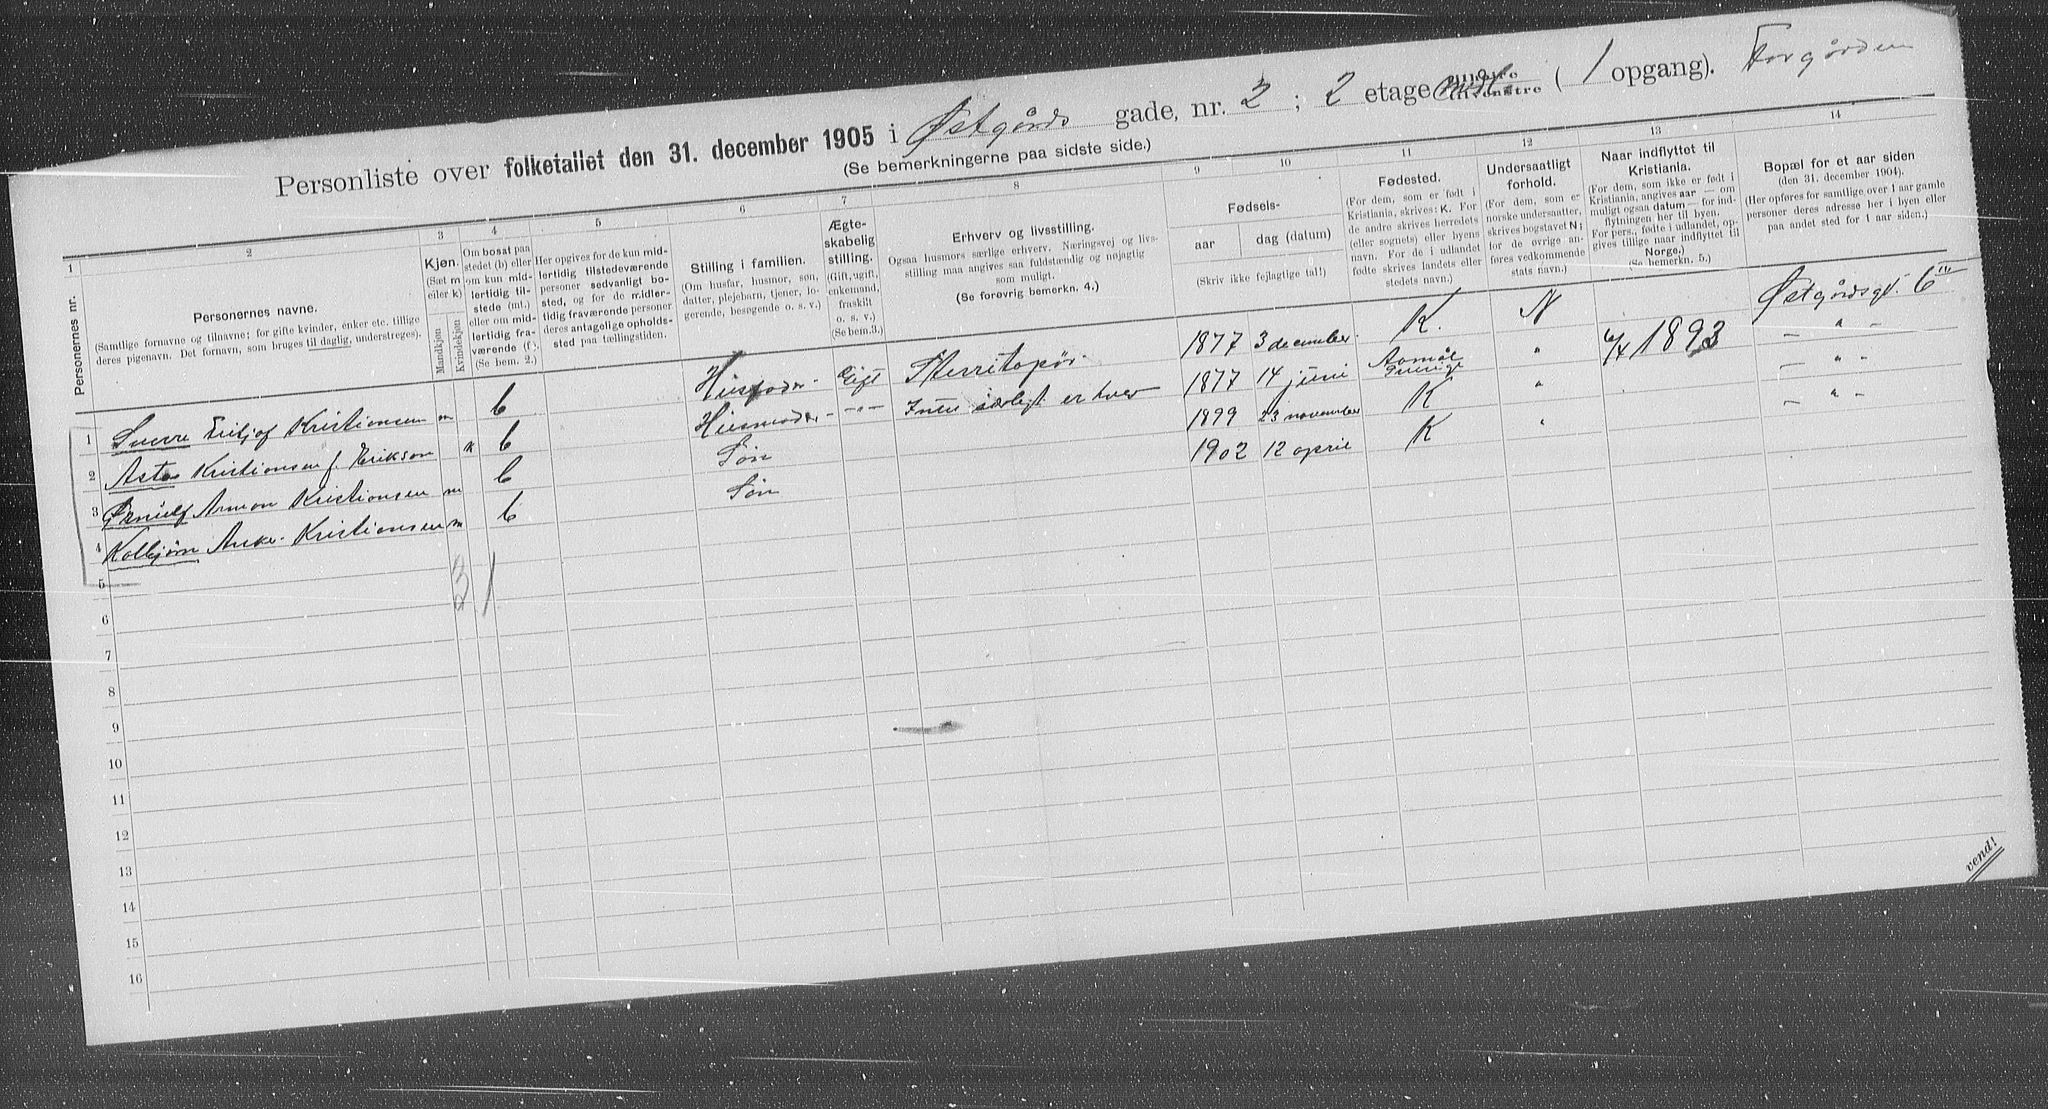 Personliste over folketallet den 31. december 1905 i Østgårds gade, nr. 2; 2 etage ( 1 opgang). Forgården
(Se bemerkningerne paa sidste side.)
1 2 3 4 5 6 7 8 9 10 11 12 13 14
Personernes nr.
Personernes navne.
(Samtlige fornavne og tilnavne; for gifte kvinder, enker etc. tillige
deres pigenavn. Det fornavn, som bruges til daglig, understreges).
Kjøn.
(Sæt m
eller k)
Mandkjøn
Kvindekjøn
Om bosat paa
stedet (b) eller
om kun mid-
lertidig til-
stede (mt.)
eller om mid-
lertidig fra-
værende (f).
(Se bem. 2.)
Her opgives for de kun mid-
lertidig tilstedeværende
personer sedvanligt bo-
sted, og for de midler-
tidig fraværende personer
deres antagelige opholds-
sted paa tællingstiden.
Stilling i familien.
(Om husfar, husmor, søn,
datter, plejebarn, tjener, lo-
gerende, besøgende o. s. v.)
Ægte-
skabelig
stilling.
(Gift, ugift,
enkemand,
fraskilt
o. s. v.)
(Se bem.3.)
Erhverv og livsstilling.
Ogsaa husmors særlige erhverv. Næringsvej og livs-
stilling maa angives saa fuldstændig og nøjagtig
som muligt.
(Se forøvrig bemerkn. 4.)
Fødsels-
aar dag (datum)
(Skriv ikke fejlagtige tal!)
Fødested.
(For dem, som er født i
Kristiania, skrives: K. For
de andre skrives herredets
(eller sognets) eller byens
navn. For de i udlandet
fødte skrives landets eller
stedets navn.)
Undersaatligt
forhold.
(For dem, som er
norske undersaatter,
skrives bogstavet N;
for de øvrige an-
føres vedkommende
stats navn.)
Naar indflyttet til
Kristiania.
(For dem, som ikke er født i
Kristiania, angives aar — om
muligt ogsaa datum — for ind-
flytningen her til byen.
For pers., fødte i udlandet, op-
gives tillige naar indflyttet til
Norge.)
(Se bemerkn. 5.)
Bopæl for et aar siden
(den 31. december 1904).
(Her opføres for samtlige over 1 aar gamle
personer deres adresse her i byen eller
paa andet sted for 1 aar siden.)
1 Kristiansen m b Husfader Gift 1877 3 december K. N Østgårdsgt. 6 III
2 Asta Kristiansen f. Erikson k b Husmoder -"- Intet særligt erhver 1877 14 juni Aamål " 1893 - " -
3 Ørnulf Arman Kristiansen m b Søn 1899 23 november K " - " -
4 Kolbjørn Anker Kristiansen m b Søn 1902 12 april K " - " -
5
3 1
6
7
8
9
10
11
12
13
14
15
16
vend!